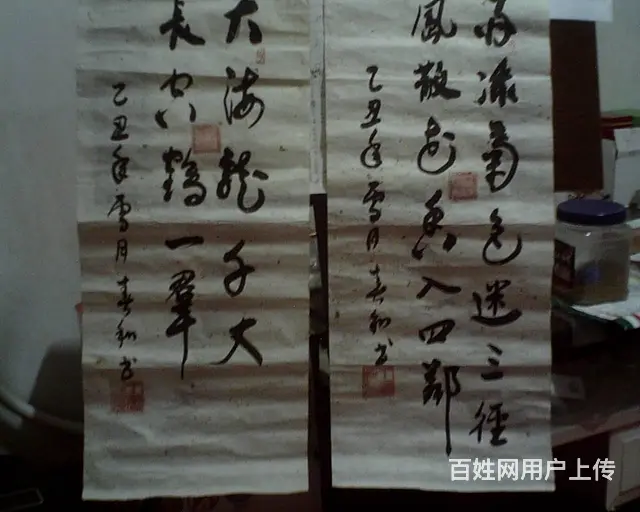 菊色迷三徑
風散花香入四鄰
乙丑年雪月春和书
大海龍千丈
長空鶴一羣
乙丑年雪月春和书
百姓网用户上传